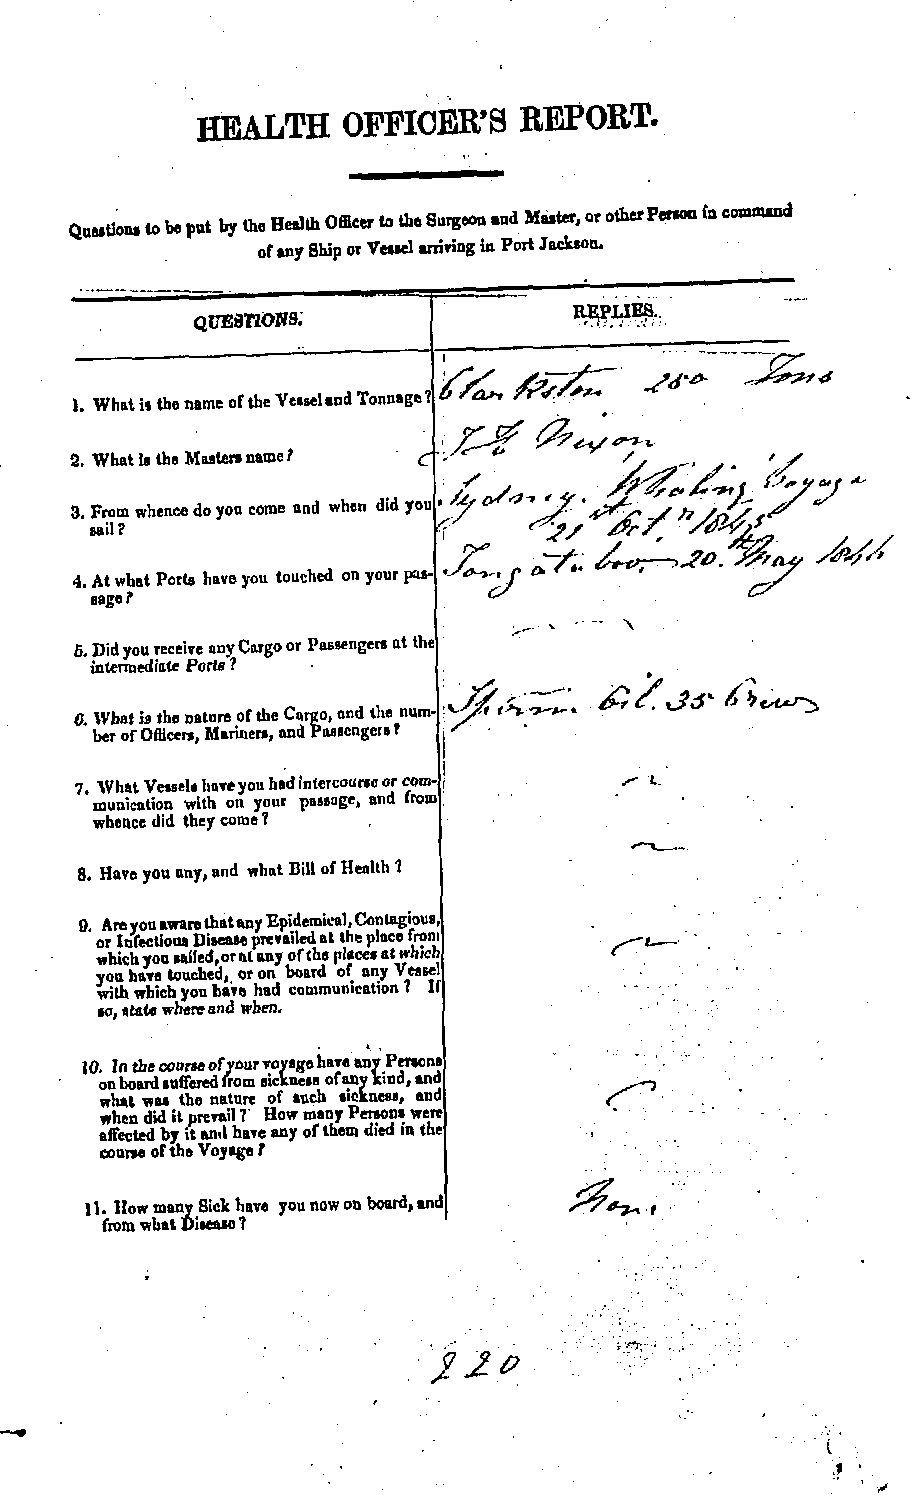 HEALTH OFFICER'S REPORT.
Questions to be put by the Health Officer to the Surgeon and Master, or other Person in command
of any Ship or Vessel arriving in Port Jackson.
QUESTIONS.
REPLIES.
1. What is the name of the Vessel and Tonnage?
Clarkston 280 Tons
2. What is the Masters name?
Nixon
3. From whence do you come and when did you
sail?
Sydney. Whaling Voyage
21st Oct.
4. At what Ports have you touched on your pas-
sage?
Tongataboo. 20th May 1844
5. Did you receive any Cargo or Passengers at the
intermediate Ports?
6. What is the nature of the Cargo, and the num-
ber of Officers, Mariners, and Passengers?
Sperm Oil. 35 Crew
7. What Vessels have you had intercourse or com-
munication with on your passage, and from
whence did they come?
8. Have you any, and what Bill of Health?
9. Are you aware that any Epidemical, Contagious,
or Infectious Disease prevailed at the place from
which you sailed, or at any of the places at which
you have touched, or on board of any Vessel
with which you have had communication? If
so, state where and when.
10. In the course of your voyage have any Persons
on board suffered from sickness of any kind, and
what was the nature of such sickness, and
when did it prevail? How many Persons were
affected by it and have any of them died in the
course of the Voyage?
11. How many Sick have you now on board, and
from what Disease?
None
220